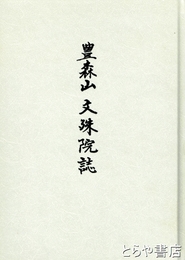 豊森山 文珠院誌
とらや書店